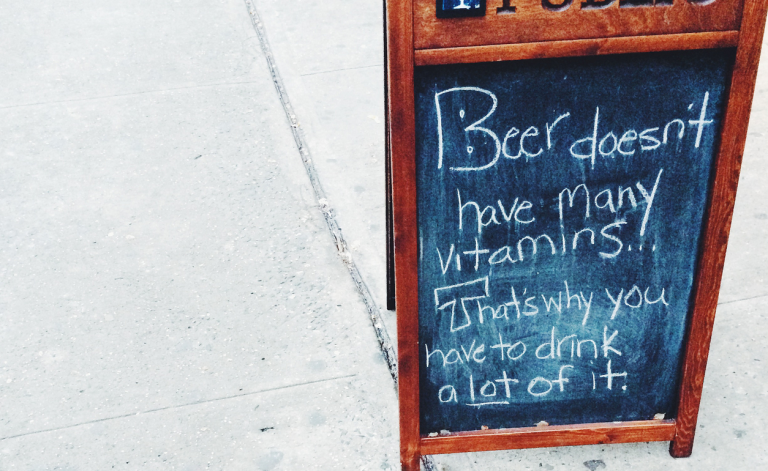 Beer doesn't
have many
vitamins...
That's why you
have to drink
a lot of it.